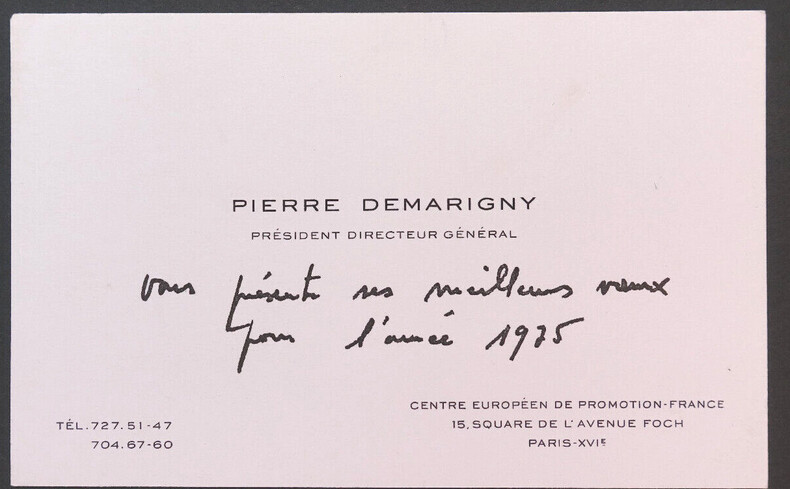 PIERRE DEMARIGNY
PRÉSIDENT DIRECTEUR GÉNÉRAL
vous présente ses meilleurs vœux
pour l'année 1975
TÉL.727.51-47
704.67-60
CENTRE EUROPÉEN DE PROMOTION-FRANCE
15, SQUARE DE L'AVENUE FOCH
PARIS-XVIE